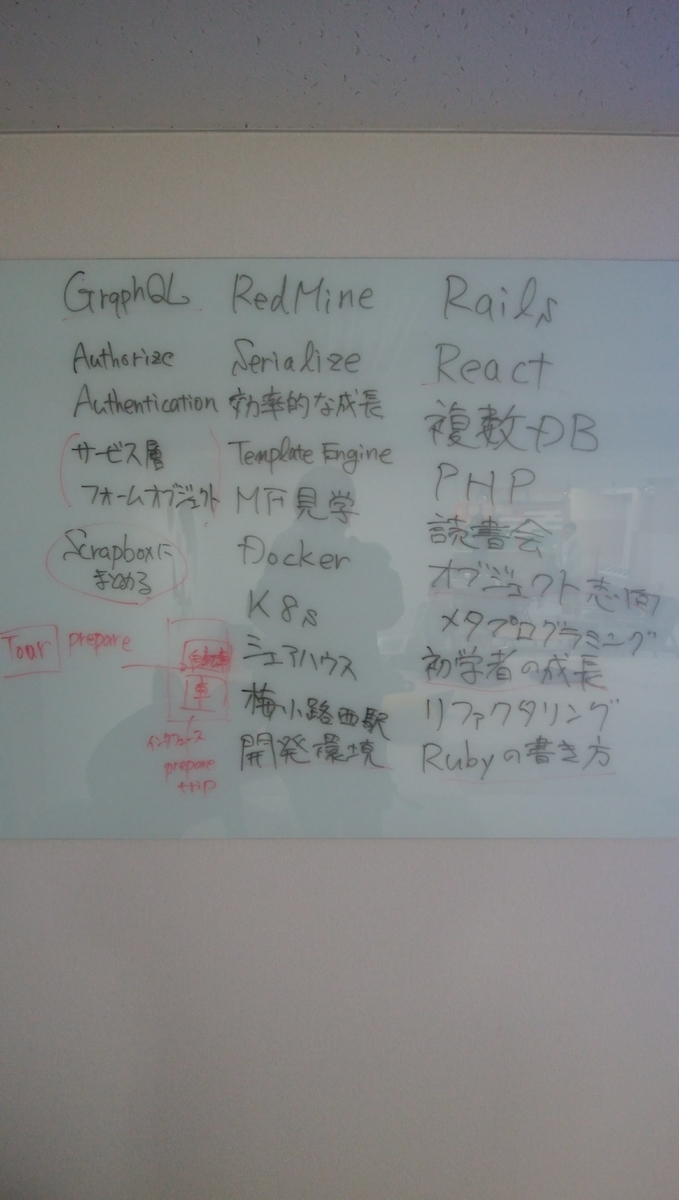 GraphQL
Authorize
Authentication
サービス層
フォームオブジェクト
Scrapboxに
まとめる
Tour
prepare
自転車
車
インタフェース
prepare
trip
RedMine
Serialize
効率的な成長
Template Engine
MF見学
Docker
K8s
シェアハウス
梅小路西駅
開発環境
Rails
React
複数DB
PHP
読書会
オブジェクト志向
メタプログラミング
初学者の成長
リファクタリング
Rubyの書き方